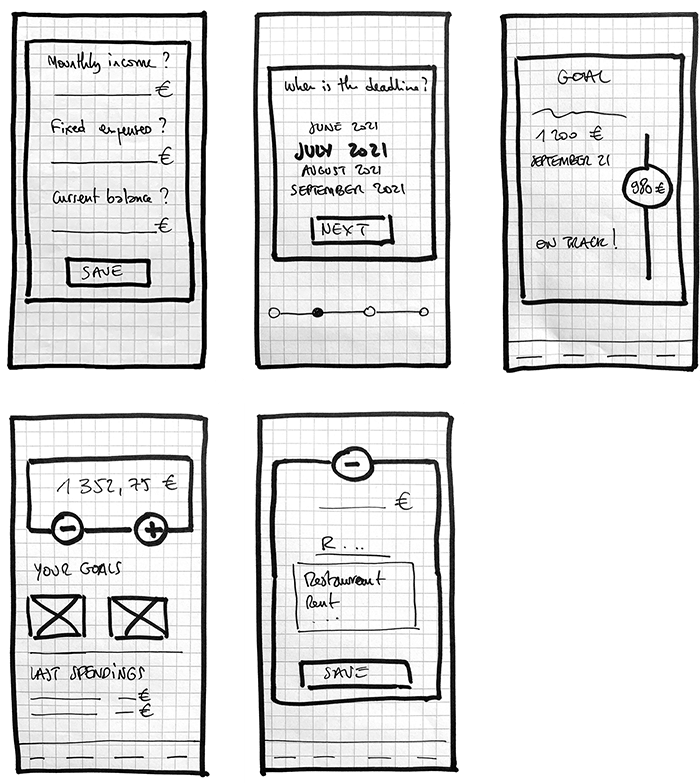 Monthly income ?
€
Fixed expenses ?
€
Current balance ?
€
SAVE
When is the deadline?
JUNE 2021
JULY 2021
AUGUST 2021
SEPTEMBER 2021
NEXT
GOAL
1 200 €
SEPTEMBER 21
980 €
ON TRACK!
1 352,75 €
-
+
YOUR GOALS
LAST SPENDINGS
€
€
-
€
R...
Restaurant
Rent
...
SAVE